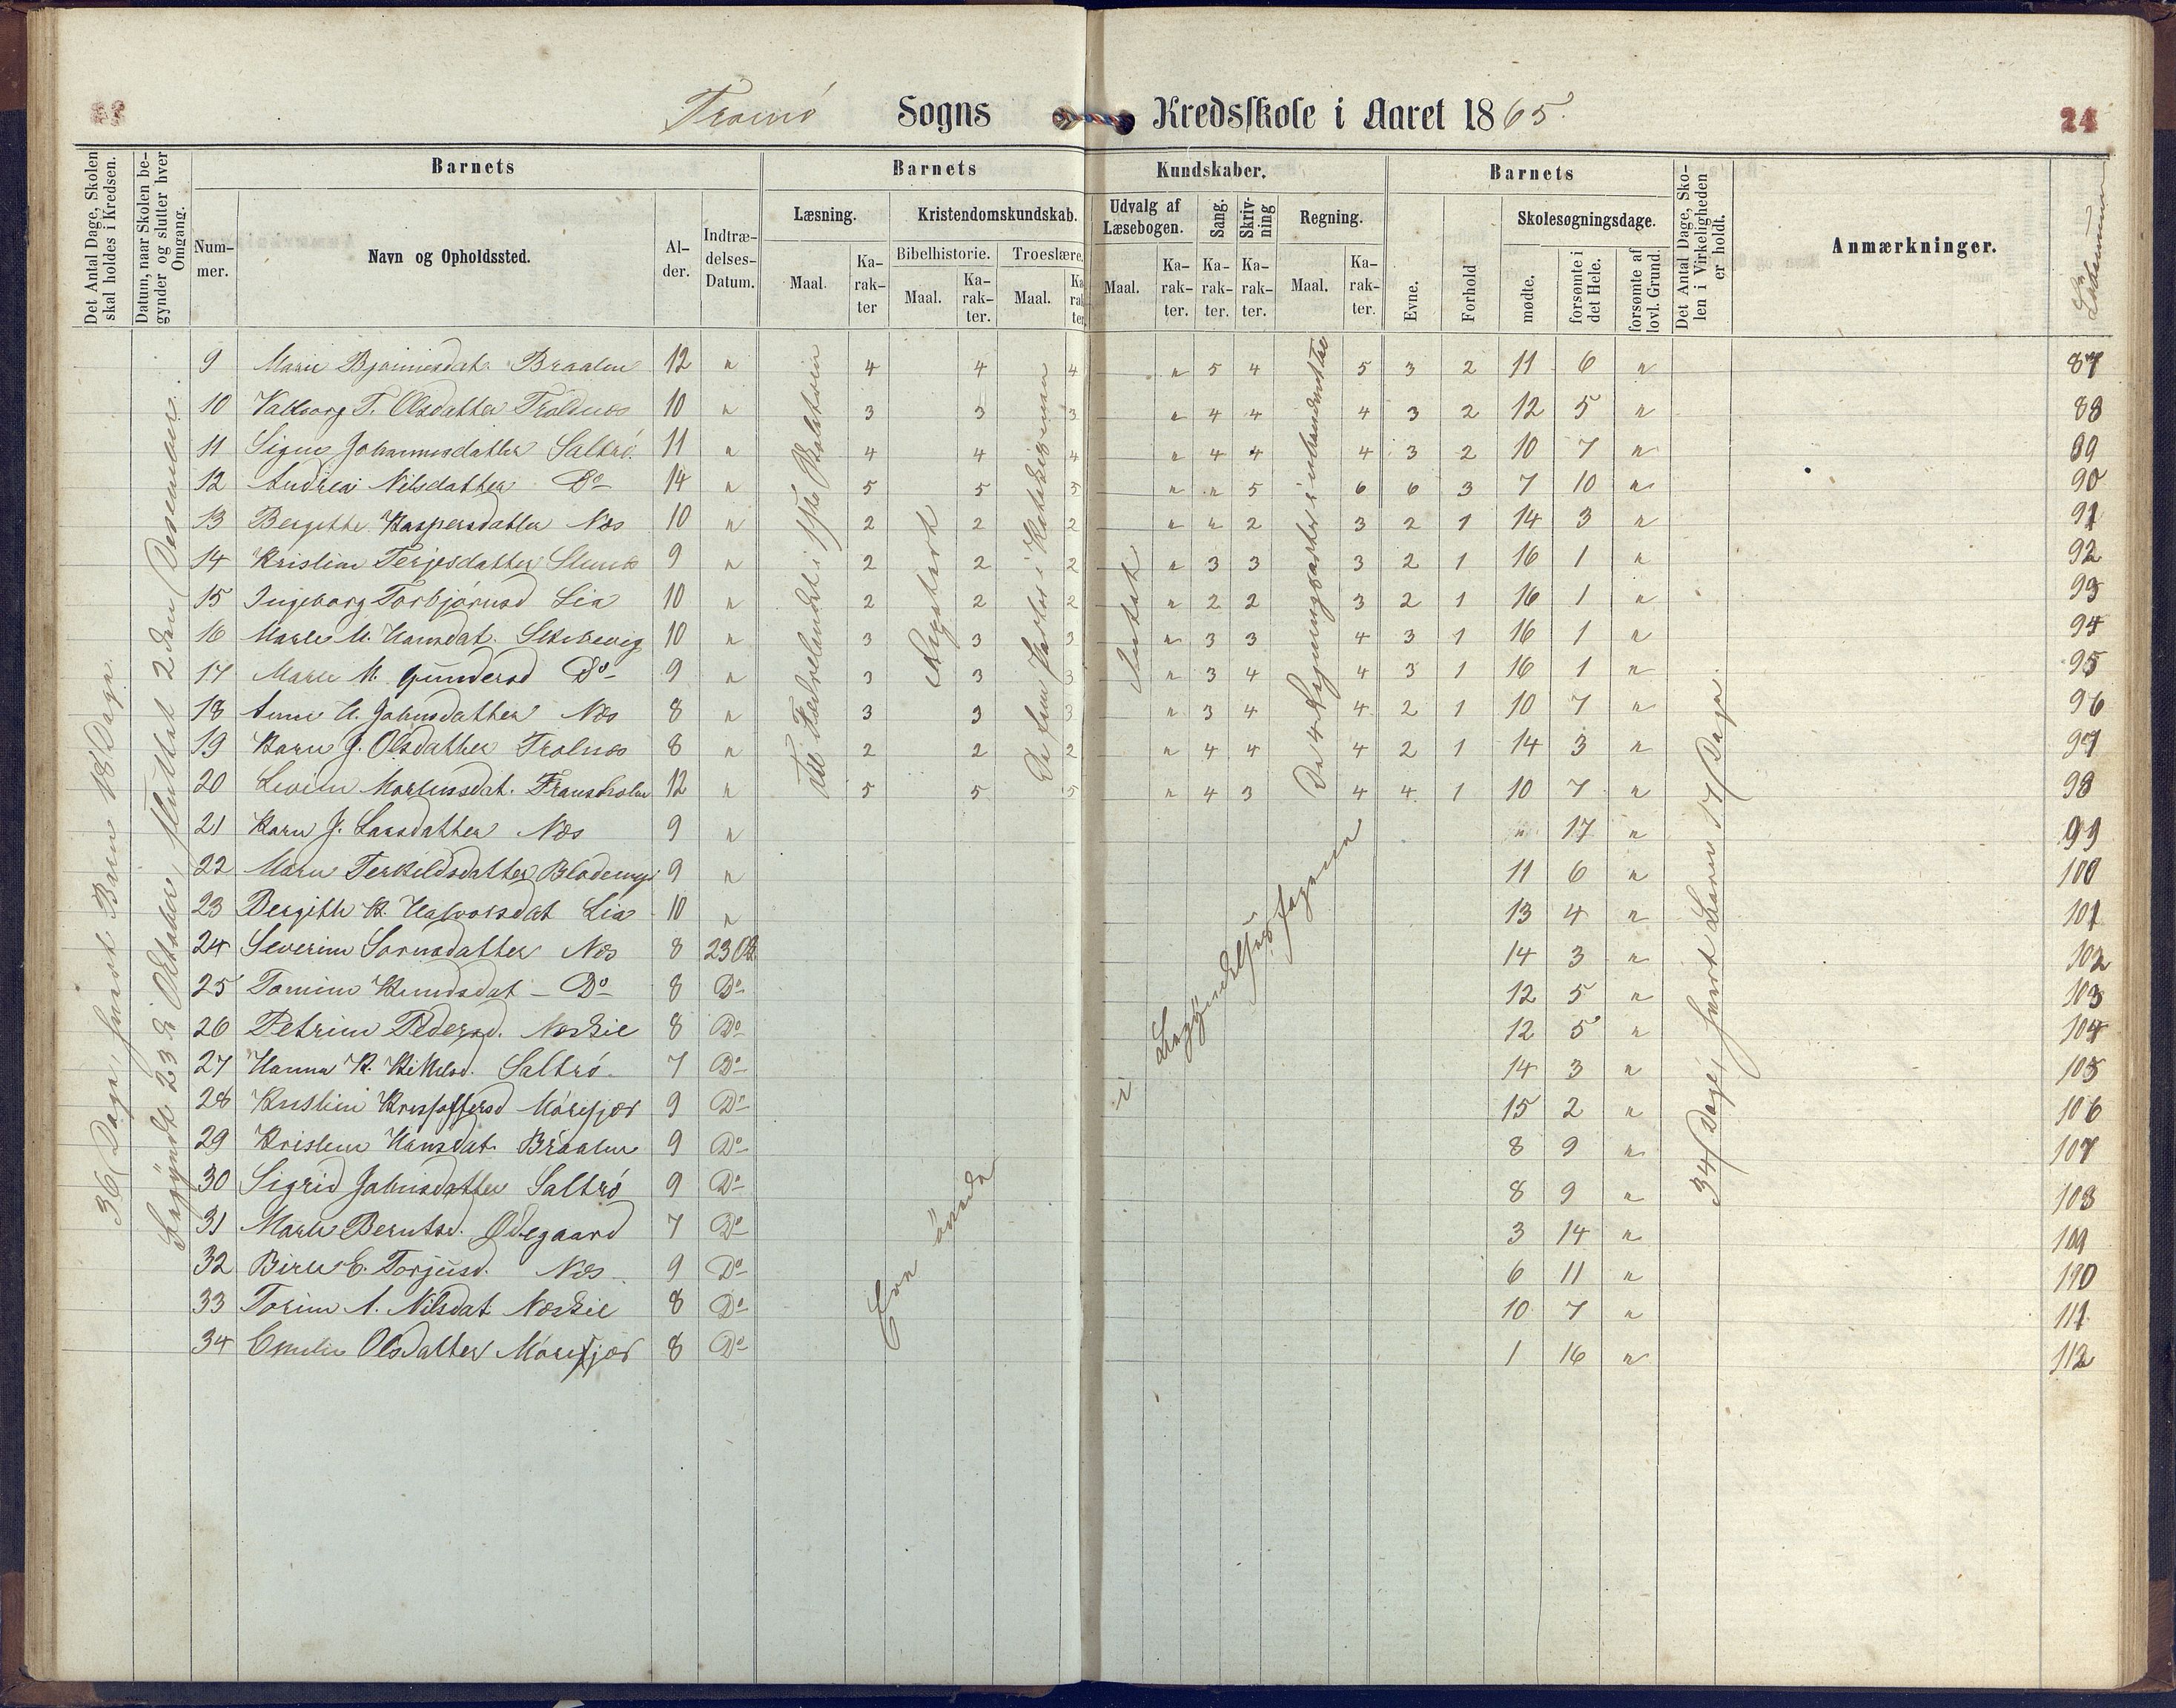 Tromø Sogns Kredsskole i Aaret 1865.
24
Det Antal Dage, Skolen skal holdes i Kredsen.
Datum, naar Skolen begynder og slutter hver Omgang.
Barnets
Nummer.
Navn og Opholdssted.
Alder.
Indtrædelses-Datum.
Barnets Kundskaber.
Læsning.
Maal.
Karakter
Kristendomskundskab.
Bibelhistorie.
Maal.
Karakter.
Troeslære.
Maal.
Karakter.
Udvalg af Læsebogen.
Maal.
Karakter.
Sang.
Karakter.
Skrivning
Karakter.
Regning.
Maal.
Karakter.
Barnets
Evne.
Forhold
Skolesøgningsdage.
mødte.
forsømte i det Hele.
forsømte af lovl. Grund.
Det Antal Dage, Skolen i Virkeligheden er holdt.
Anmærkninger.
36 Dage, hvert Barn 18 Dage.
Begyndte 23de Oktober, sluttet 2den Desember.
34 Dage, hvert Barn 17 Dage
9 Maria Bjørnersdat. Braalen 12 " 4 4 4 " 5 4 5 3 2 11 6 " 87
10 Valborg T. Olsdatter Troldnæs 10 " 3 3 3 " 4 4 4 3 2 12 5 " 88
11 Signe Johannesdatter Saltrø. 11 " 4 4 4 " 4 4 4 3 2 10 7 " 89
12 Andrea Nilsdatter Do 14 " 5 5 5 " " 5 6 6 3 7 10 " 90
13 Bergithe Kaspersdatter Næs 10 " 2 2 2 " " 2 3 2 1 14 3 " 91
14 Kristine Terjesdatter 9 " 2 2 2 " 3 3 3 2 1 16 1 " 92
15 Ingeborg Torbjørnsd Lia 10 " 2 2 2 " 2 2 3 2 1 16 1 " 93
16 Maren M. Hansdat. 10 " 3 3 3 " 3 3 4 3 1 16 1 " 94
17 Maren M. Gundersd Do 9 " 3 3 3 " 3 4 4 3 1 16 1 " 95
18 Anne H. Johnsdatter Næs 8 " 3 3 3 " 3 4 4 2 1 10 7 " 96
19 Karen J. Olsdatter Trolnæs 8 " 2 2 2 " 4 4 4 2 1 14 3 " 97
20 Levine Mortensdat. Fransholm 12 " 5 5 5 " 4 3 4 4 1 10 7 " 98
21 Karen J. Larsdatter Næs 9 " " 17 " 99
22 Maren Terkildsdatter Blødemyr 9 " 11 6 " 100
23 Bergithe K. Halvorsdat Lia 10 " 13 4 " 101
24 Severine Sørensdatter Næs 8 23 Okt. 14 3 " 102
25 Tomine Knudsdat - Do 8 Do 12 5 " 103
26 Petrine Pedersd. Næskil 8 Do 12 5 " 104
27 Hanna K. Kittelsd. Saltrø. 7 Do 14 3 " 105
28 Kristine Kristoffersd Mørefjær 9 Do 15 2 " 106
29 Kristine Hansdat. Braalen 9 Do 8 9 " 107
30 Sigrid Johnsdatter Saltrø 9 Do 8 9 " 108
31 Maren Berntsd. Ødegaard 7 Do 3 14 " 109
32 Birthe E. Torjusd. Næs 9 Do 6 11 " 110
33 Torine A. Nilsdat Næskil 8 Do 10 7 " 111
34 Emilie Olsdatter Mørefjær 8 Do 1 16 " 112
Øvede i Begyndelsesfagene